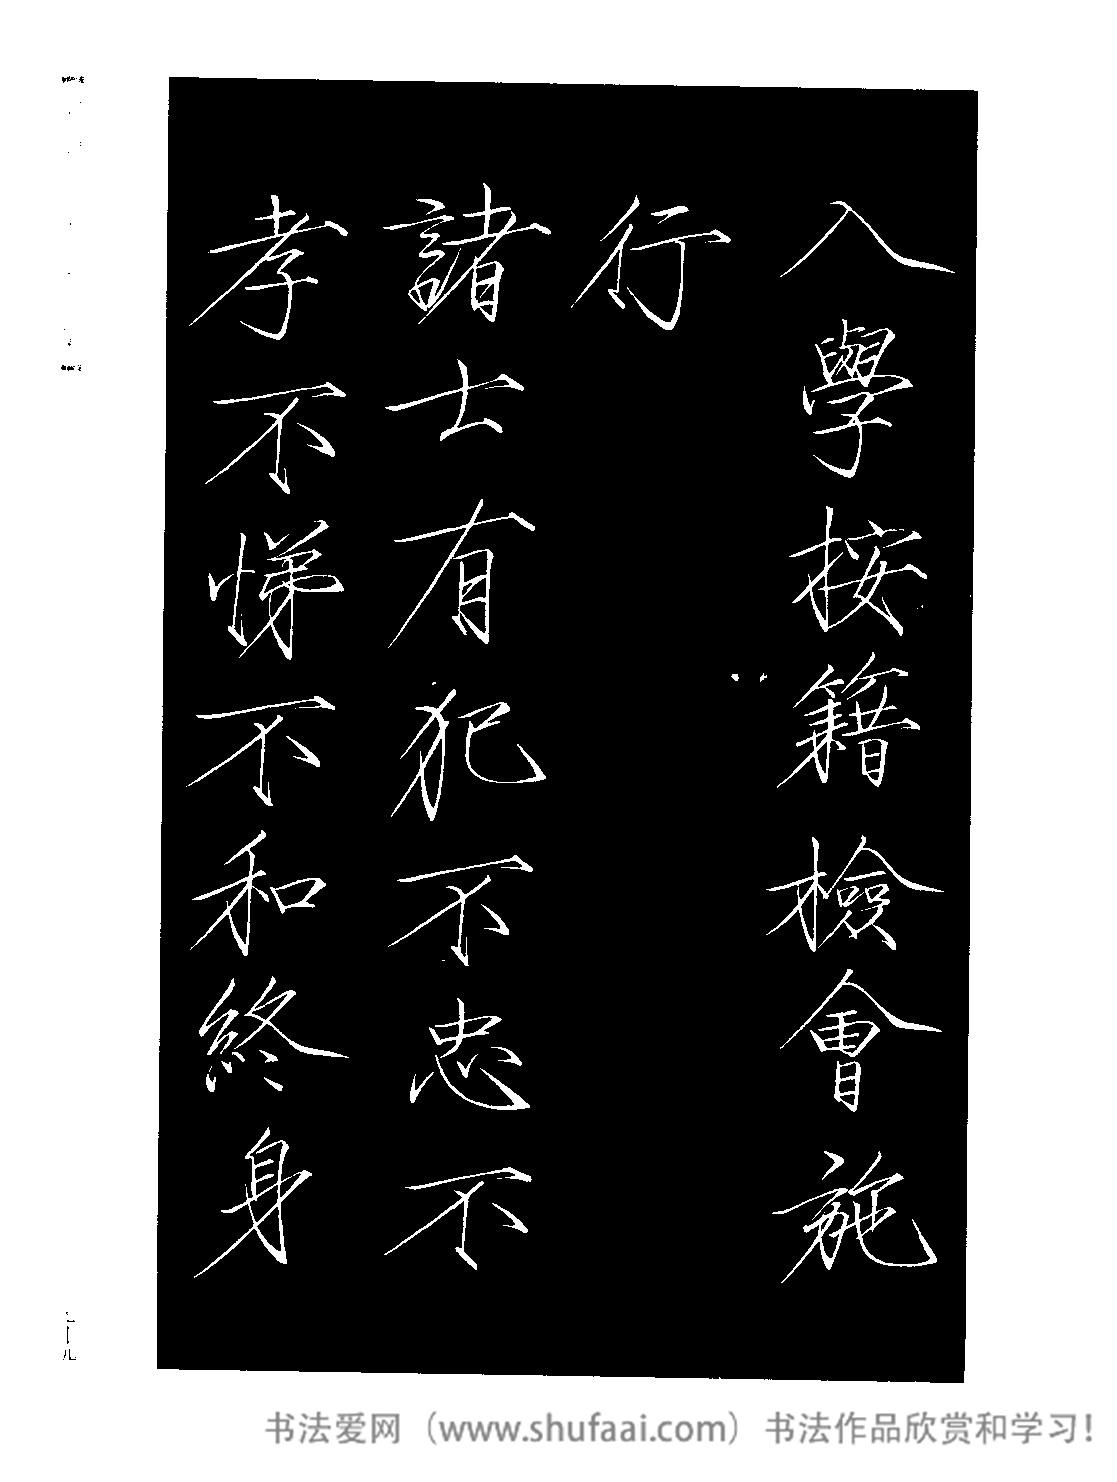 入學按籍檢會施
行
諸士有犯不忠不
孝不悌不和終身
七十九
书法爱网（www.shufaai.com）书法作品欣赏和学习！